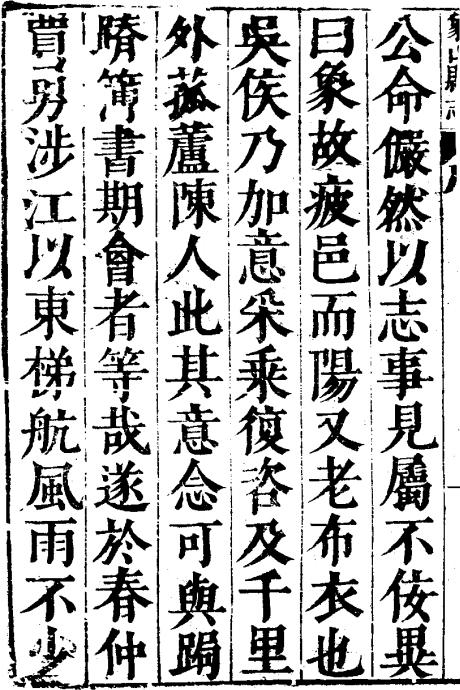 象山縣志
公命儼然以志事見屬不佞異
曰象故疲邑而陽又老布衣也
吳侯乃加意采乘復咨及千里
外菰蘆陳人此其意念可與跼
蹐簿書期會者等哉遂於春仲
涉江以東梯航風雨不少